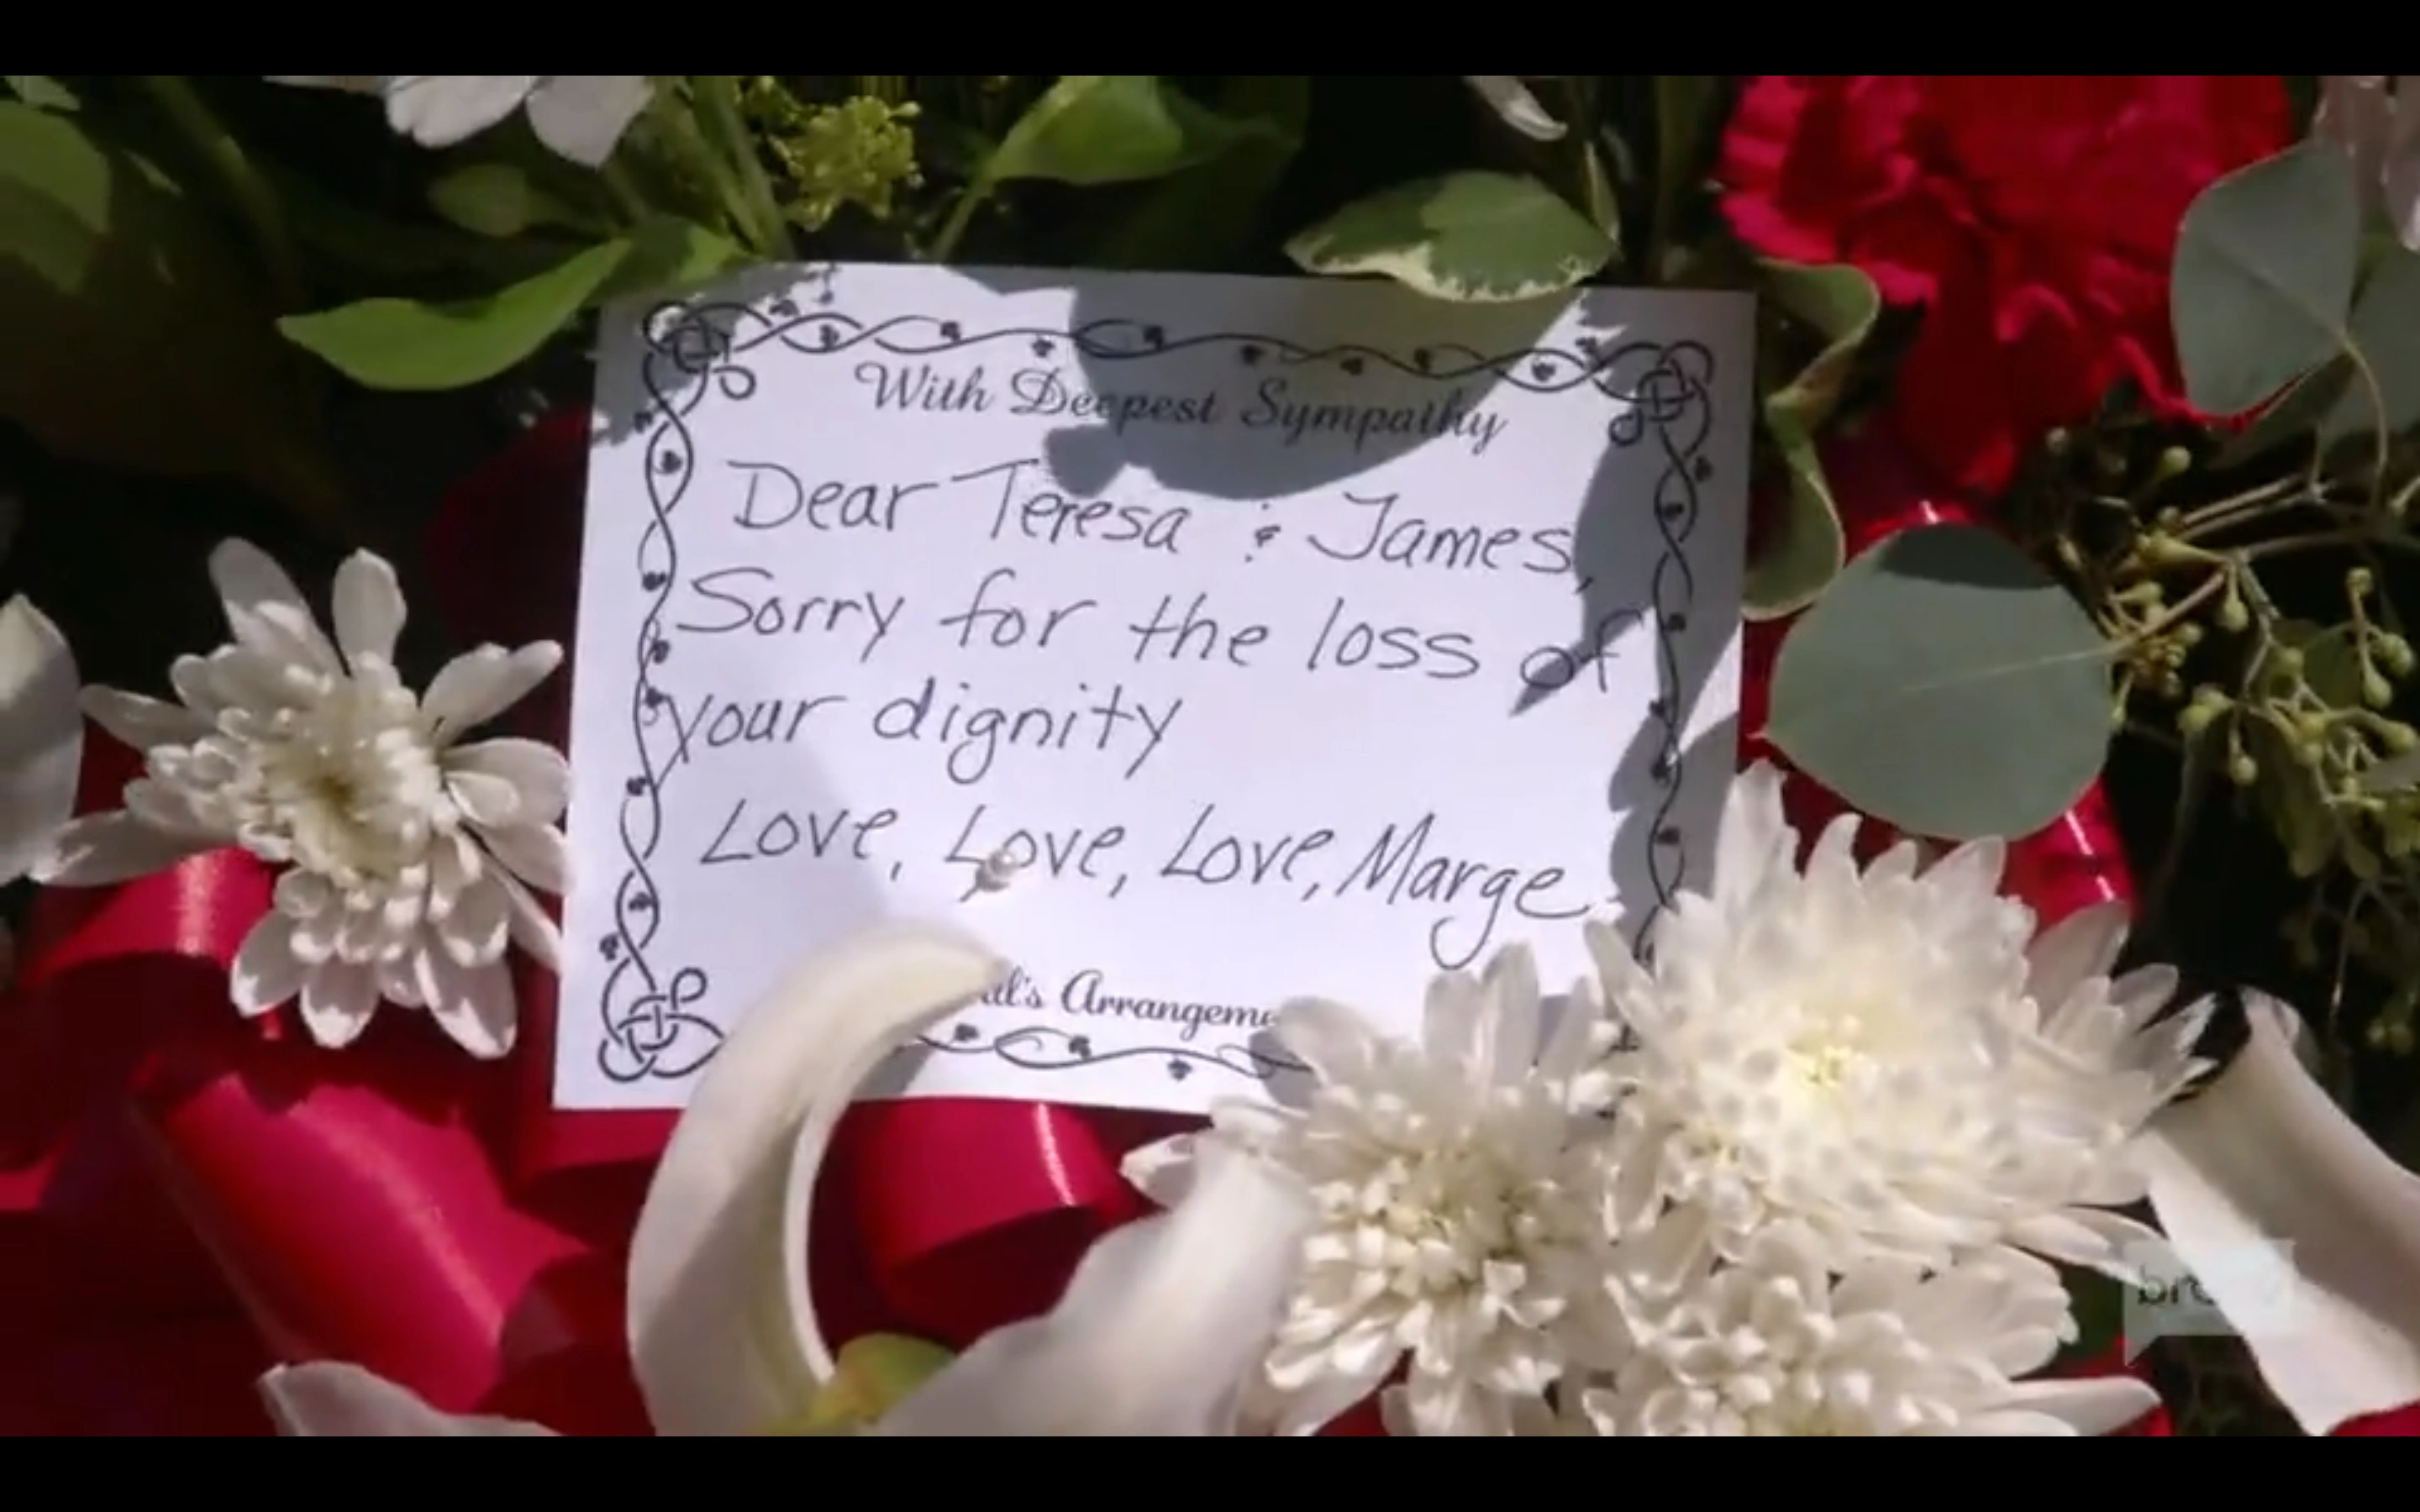 With Deepest Sympathy
Dear Teresa & James,
Sorry for the loss of
your dignity
Love, Love, Love, Marge